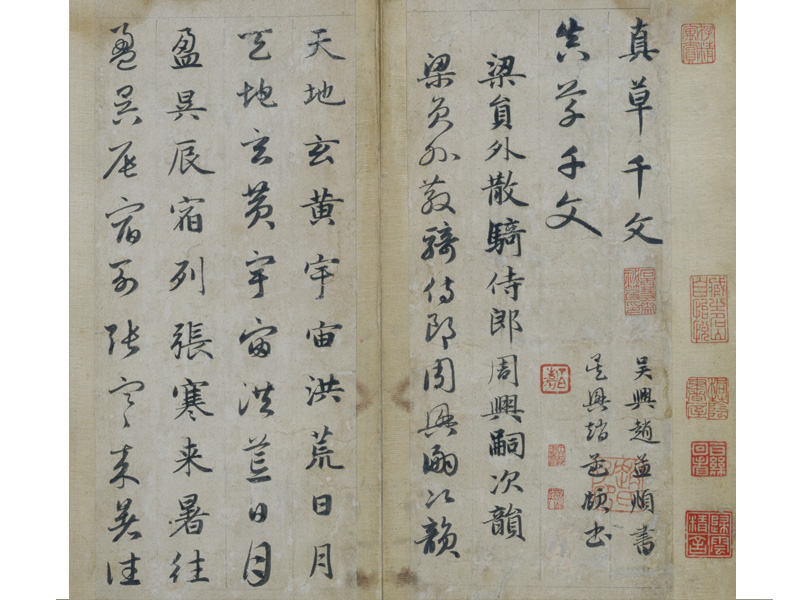 真草千文
吴興趙孟頫書
真草千文
吴興趙孟頫書
梁員外散騎侍郎周興嗣次韻
梁員外散騎侍郎周興嗣次韻
天地玄黄宇宙洪荒日月
天地玄黄宇宙洪荒日月
盈昃辰宿列張寒来暑往
盈昃辰宿列張寒来暑往